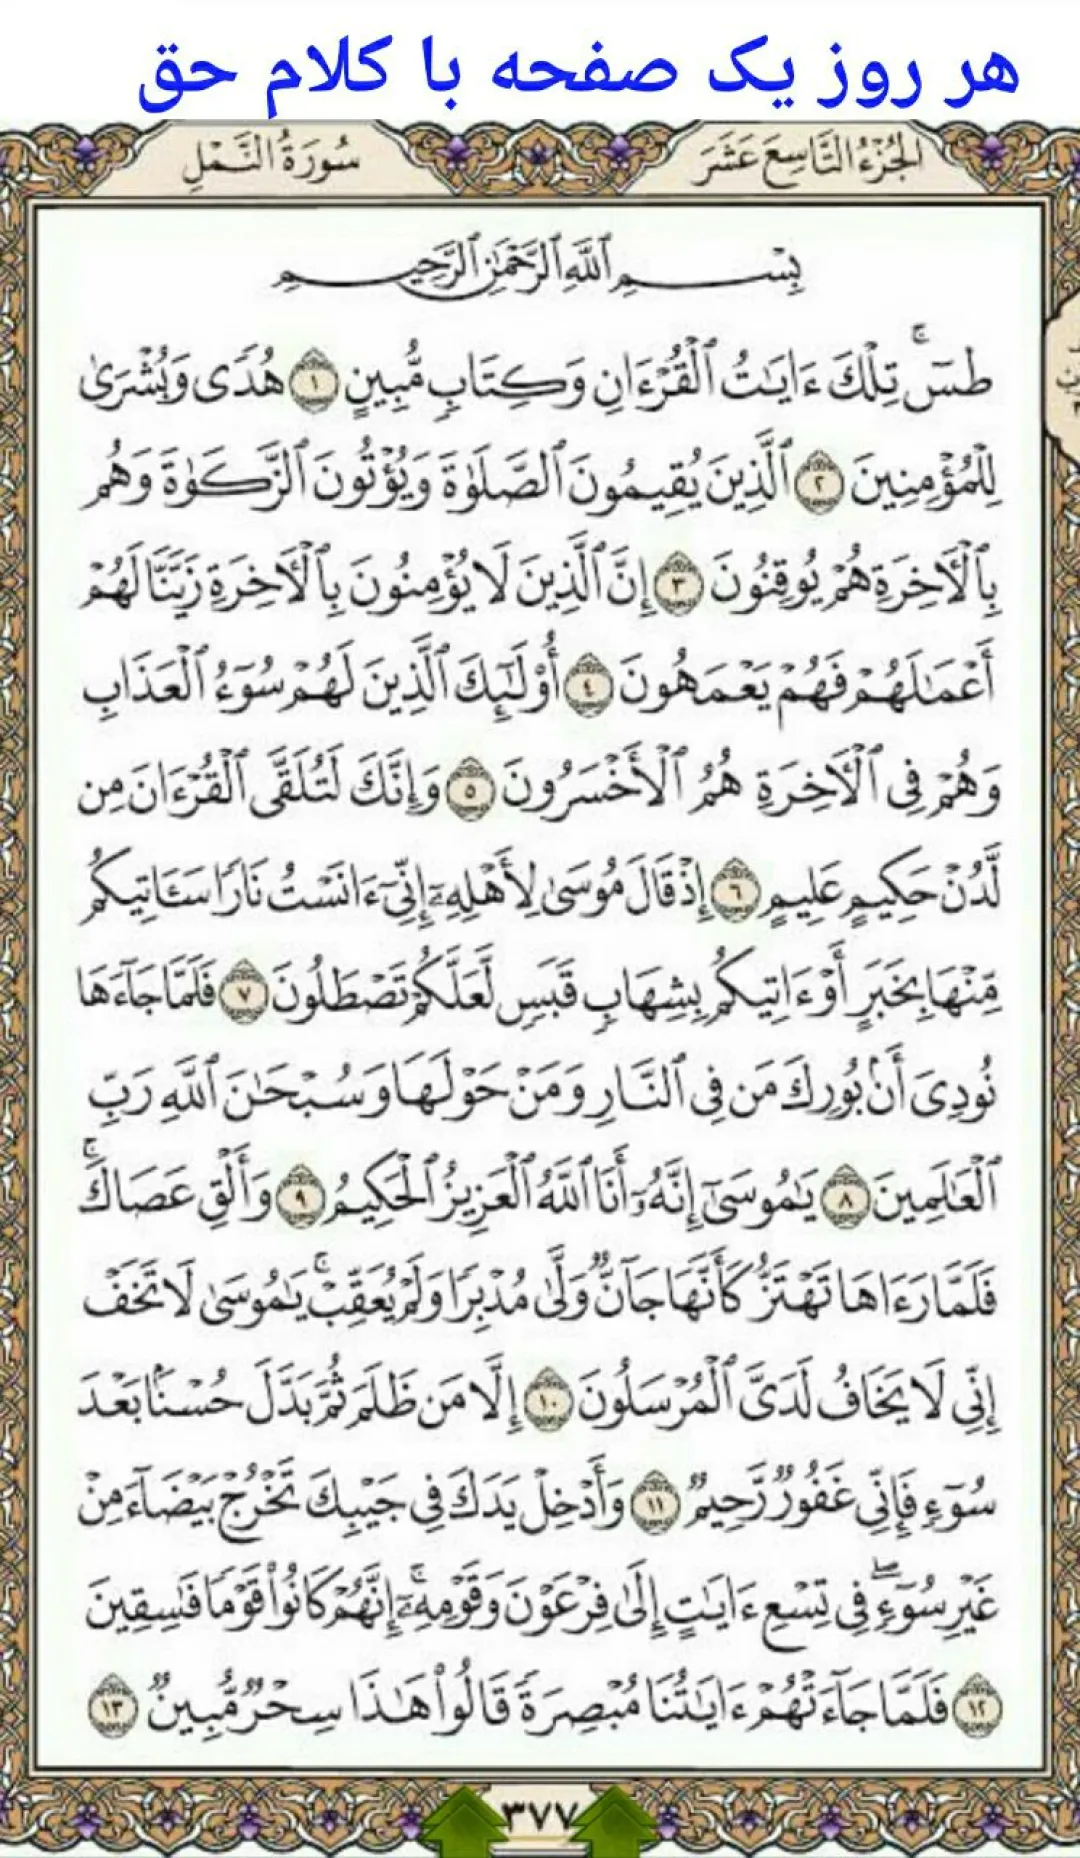 هر روز یک صفحه با کلام حق
الجُزْءُ التَّاسِعَ عَشَرَ
سُورَةُ النَّمْلِ
بِسْمِ ٱللَّهِ ٱلرَّحْمَٰنِ ٱلرَّحِيمِ
طسٓ ۚ تِلْكَ ءَايَٰتُ ٱلْقُرْءَانِ وَكِتَابٍ مُّبِينٍ ١ هُدًى وَبُشْرَىٰ
لِلْمُؤْمِنِينَ ٢ ٱلَّذِينَ يُقِيمُونَ ٱلصَّلَوٰةَ وَيُؤْتُونَ ٱلزَّكَوٰةَ وَهُم
بِٱلْءَاخِرَةِ هُمْ يُوقِنُونَ ٣ إِنَّ ٱلَّذِينَ لَا يُؤْمِنُونَ بِٱلْءَاخِرَةِ زَيَّنَّا لَهُمْ
أَعْمَٰلَهُمْ فَهُمْ يَعْمَهُونَ ٤ أُو۟لَٰٓئِكَ ٱلَّذِينَ لَهُمْ سُوٓءُ ٱلْعَذَابِ
وَهُمْ فِى ٱلْءَاخِرَةِ هُمُ ٱلْأَخْسَرُونَ ٥ وَإِنَّكَ لَتُلَقَّى ٱلْقُرْءَانَ مِن
لَّدُنْ حَكِيمٍ عَلِيمٍ ٦ إِذْ قَالَ مُوسَىٰ لِأَهْلِهِۦٓ إِنِّىٓ ءَانَسْتُ نَارًا سَـَٔاتِيكُم
مِّنْهَا بِخَبَرٍ أَوْ ءَاتِيكُم بِشِهَابٍ قَبَسٍ لَّعَلَّكُمْ تَصْطَلُونَ ٧ فَلَمَّا جَآءَهَا
نُودِىَ أَنۢ بُورِكَ مَن فِى ٱلنَّارِ وَمَنْ حَوْلَهَا وَسُبْحَٰنَ ٱللَّهِ رَبِّ
ٱلْعَٰلَمِينَ ٨ يَٰمُوسَىٰٓ إِنَّهُۥٓ أَنَا ٱللَّهُ ٱلْعَزِيزُ ٱلْحَكِيمُ ٩ وَأَلْقِ عَصَاكَ ۚ
فَلَمَّا رَءَاهَا تَهْتَزُّ كَأَنَّهَا جَآنٌّ وَلَّىٰ مُدْبِرًا وَلَمْ يُعَقِّبْ ۚ يَٰمُوسَىٰ لَا تَخَفْ
إِنِّى لَا يَخَافُ لَدَىَّ ٱلْمُرْسَلُونَ ١٠ إِلَّا مَن ظَلَمَ ثُمَّ بَدَّلَ حُسْنًۢا بَعْدَ
سُوٓءٍ فَإِنِّى غَفُورٌ رَّحِيمٌ ١١ وَأَدْخِلْ يَدَكَ فِى جَيْبِكَ تَخْرُجْ بَيْضَآءَ مِنْ
غَيْرِ سُوٓءٍ ۖ فِى تِسْعِ ءَايَٰتٍ إِلَىٰ فِرْعَوْنَ وَقَوْمِهِۦٓ ۚ إِنَّهُمْ كَانُوا۟ قَوْمًا فَٰسِقِينَ
١٢ فَلَمَّا جَآءَتْهُمْ ءَايَٰتُنَا مُبْصِرَةً قَالُوا۟ هَٰذَا سِحْرٌ مُّبِينٌ ١٣
٣٧٧